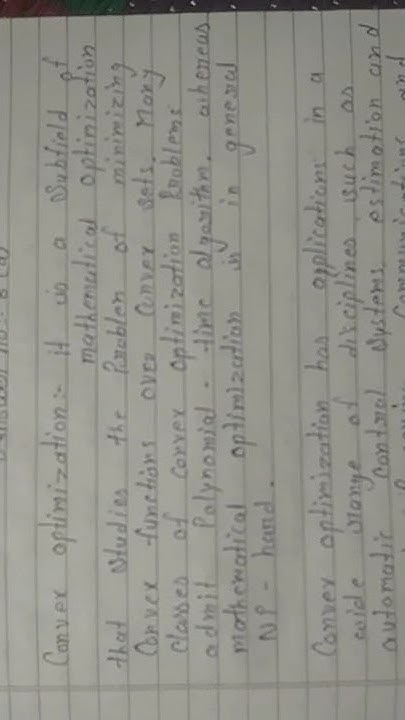 Convex optimization:- it is a subfield of
mathematical optimization
that studies the Problem of minimizing
Convex functions over Convex sets. Many
classes of convex optimization Problems
admit Polynomial - time algorithm, whereas
mathematical optimization is in general
NP - hand.
Convex optimization has applications in a
wide range of disciplines, such as
automatic Control systems, estimation and